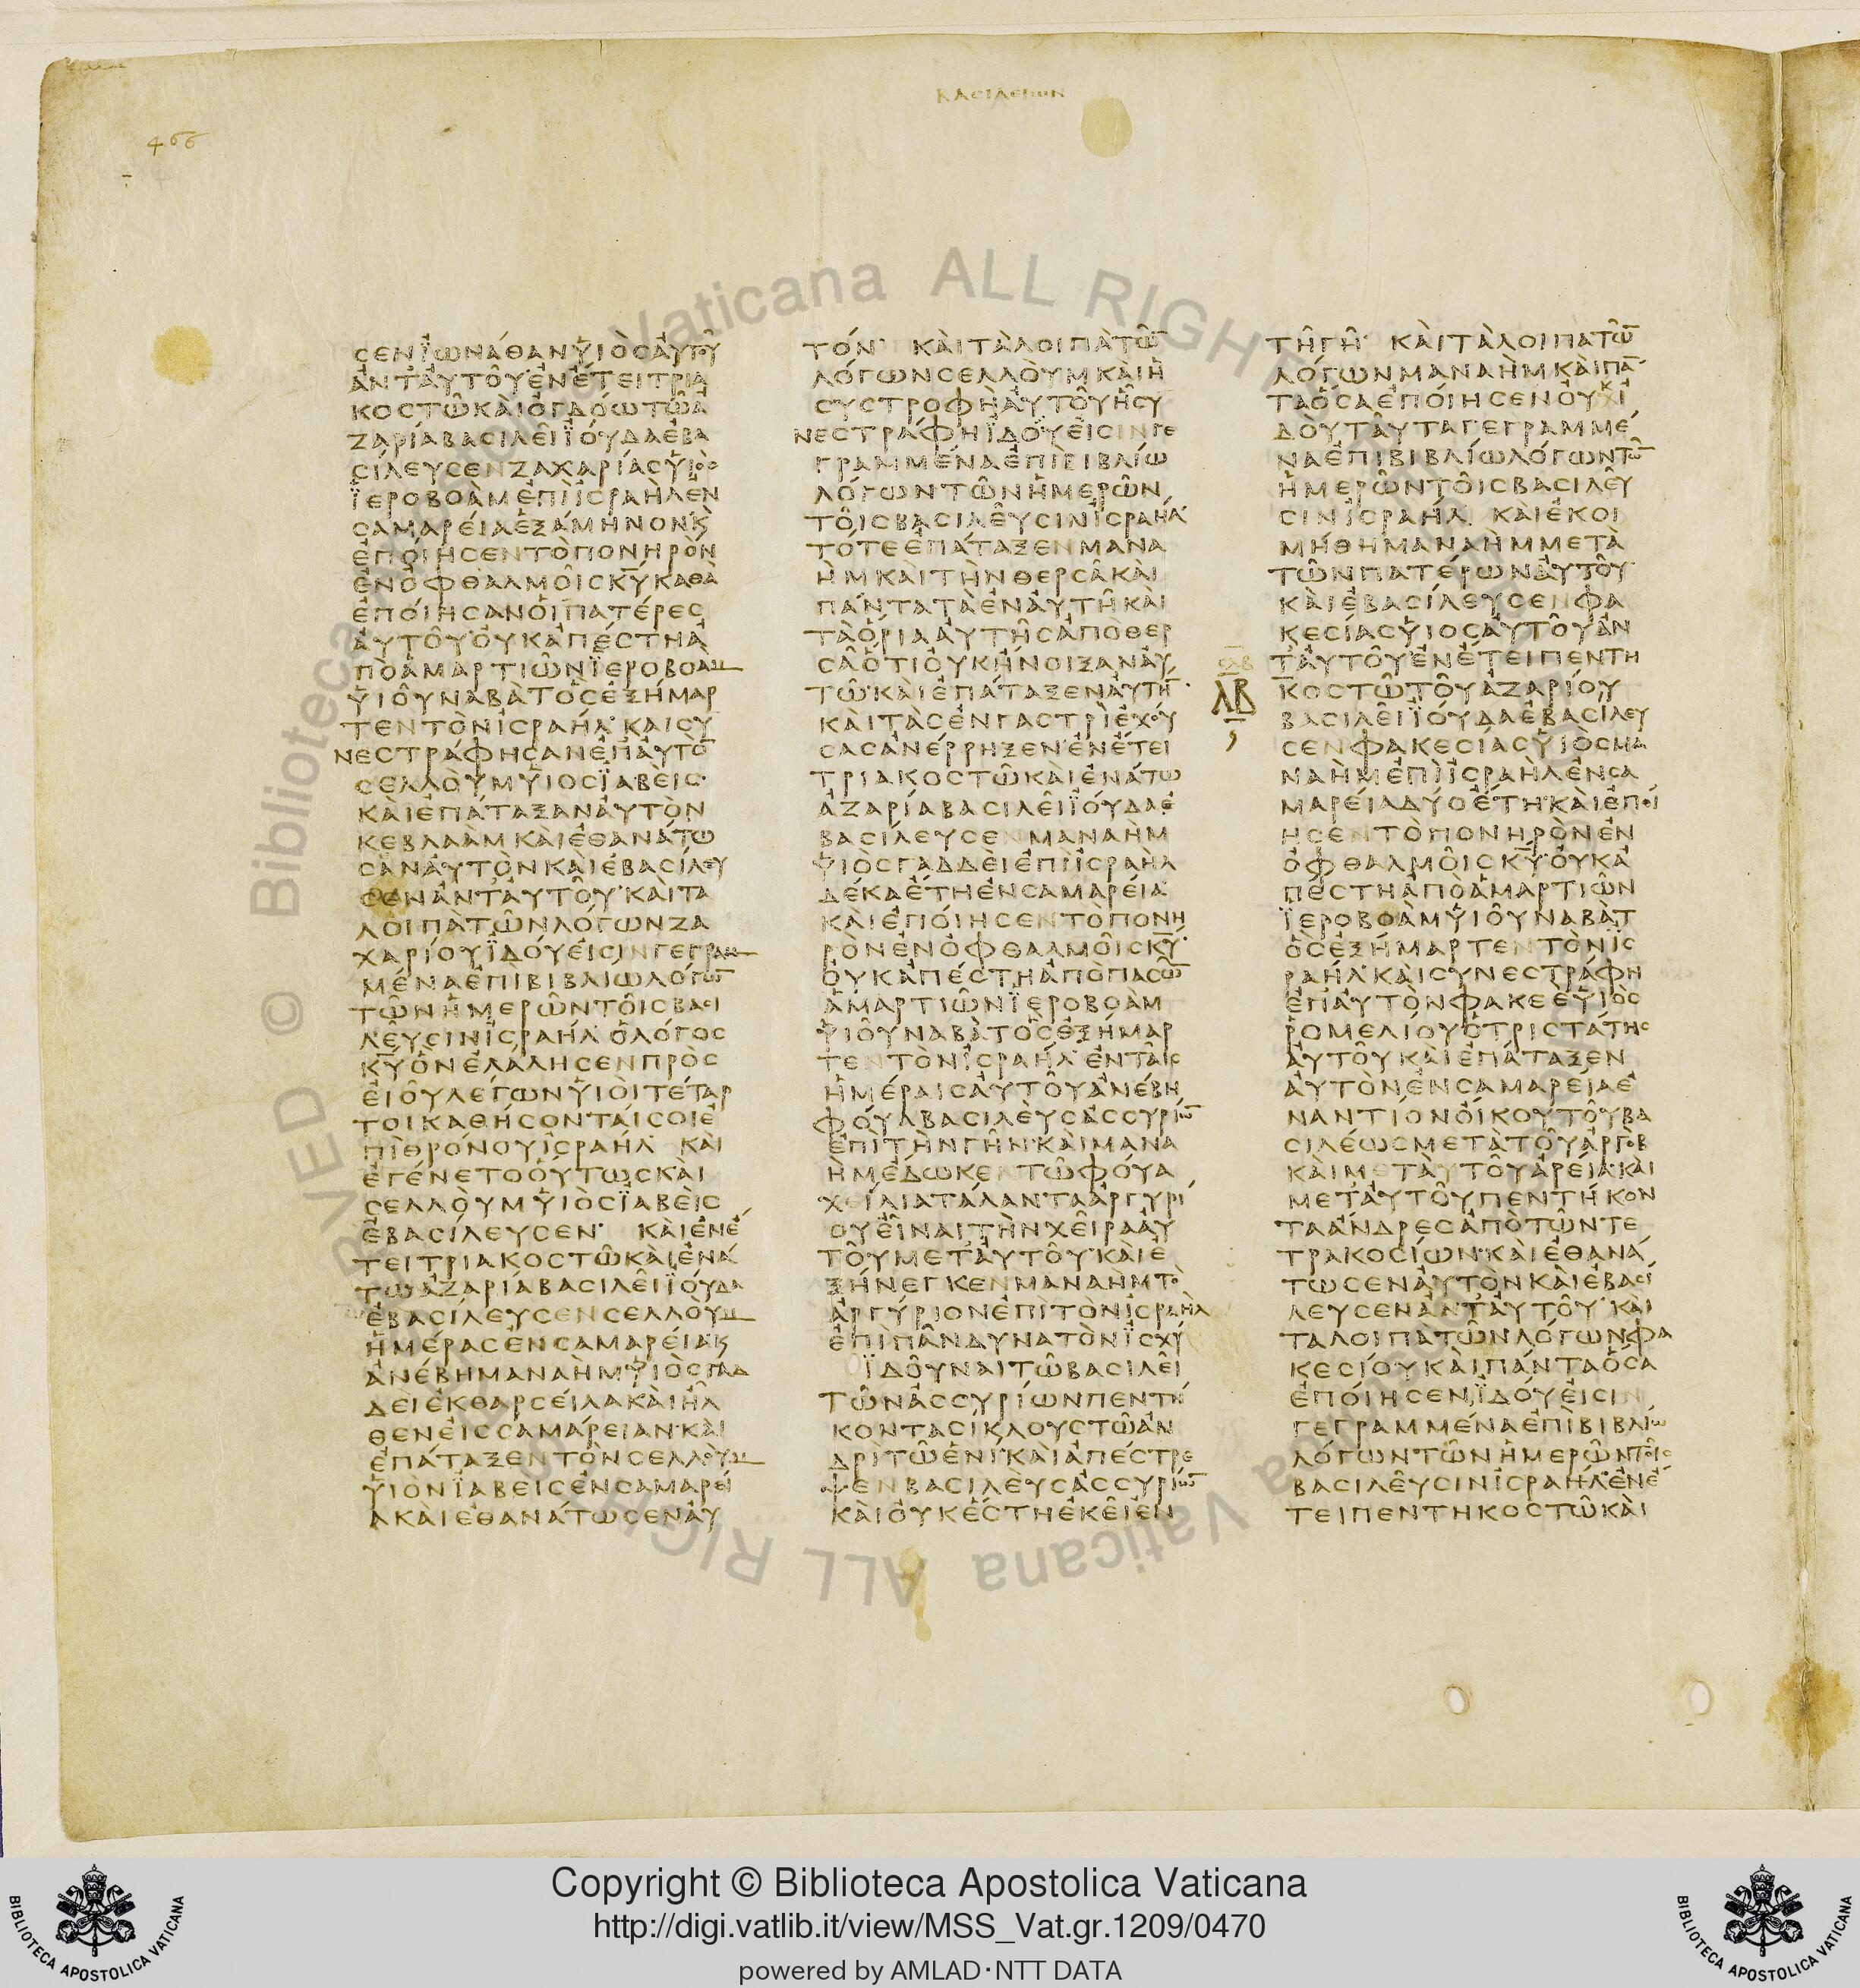 ΒΑϹΙΛΕΙΩΝ
466
ϹΕΝΙΩΝΑΘΑΝΥΙΟϹΑΥΤΟΥ
ΑΝΤΑΥΤΟΥΕΝΕΤΕΙΤΡΙΑ
ΚΟϹΤΩΚΑΙΟΓΔΟΩΤΩΑ
ΖΑΡΙΑΒΑϹΙΛΕΙΙΟΥΔΑΕΒΑ
ϹΙΛΕΥϹΕΝΖΑΧΑΡΙΑϹΥΙΟϹ
ΙΕΡΟΒΟΑΜΕΠΙΙϹΡΑΗΛΕΝ
ϹΑΜΑΡΕΙΑΕΞΑΜΗΝΟΝΚ
ΕΠΟΙΗϹΕΝΤΟΠΟΝΗΡΟΝ
ΕΝΟΦΘΑΛΜΟΙϹΚΥΚΑΘΑ
ΕΠΟΙΗϹΑΝΟΙΠΑΤΕΡΕϹ
ΑΥΤΟΥΟΥΚΑΠΕϹΤΗΑ
ΠΟΑΜΑΡΤΙΩΝΙΕΡΟΒΟΑΜ
ΥΙΟΥΝΑΒΑΤΟϹΕΞΗΜΑΡ
ΤΕΝΤΟΝΙϹΡΑΗΛ ΚΑΙϹΥ
ΝΕϹΤΡΑΦΗϹΑΝΕΠΑΥΤΟ̅
ϹΕΛΛΟΥΜΥΙΟϹΙΑΒΕΙϹ
ΚΑΙΕΠΑΤΑΞΑΝΑΥΤΟΝ
ΚΕΒΛΑΑΜΚΑΙΕΘΑΝΑΤΩ
ϹΑΝΑΥΤΟΝΚΑΙΕΒΑϹΙΛΕΥ
ϹΕΝΑΝΤΑΥΤΟΥ ΚΑΙΤΑ
ΛΟΙΠΑΤΩΝΛΟΓΩΝΖΑ
ΧΑΡΙΟΥΙΔΟΥΕΙϹΙΝΓΕΓΡΑΜ
ΜΕΝΑΕΠΙΒΙΒΛΙΩΛΟΓΩ̅
ΤΩΝΗΜΕΡΩΝΤΟΙϹΒΑϹΙ
ΛΕΥϹΙΝΙϹΡΑΗΛ ΟΛΟΓΟϹ
ΚΥΟΝΕΛΑΛΗϹΕΝΠΡΟϹ
ΕΙΟΥΛΕΓΩΝΥΙΟΙΤΕΤΑΡ
ΤΟΙΚΑΘΗϹΟΝΤΑΙϹΟΙΕ
ΠΙΘΡΟΝΟΥΙϹΡΑΗΛ ΚΑΙ
ΕΓΕΝΕΤΟΟΥΤΩϹΚΑΙ
ϹΕΛΛΟΥΜΥΙΟϹΙΑΒΕΙϹ
ΕΒΑϹΙΛΕΥϹΕΝ ΚΑΙΕΝΕ
ΤΕΙΤΡΙΑΚΟϹΤΩΚΑΙΕΝΑ
ΤΩΑΖΑΡΙΑΒΑϹΙΛΕΙΙΟΥΔΑ
ΕΒΑϹΙΛΕΥϹΕΝϹΕΛΛΟΥΜ
ΗΜΕΡΑϹΕΝϹΑΜΑΡΕΙΑΚ
ΑΝΕΒΗΜΑΝΑΗΜΥΙΟϹΓΑΔ
ΔΕΙΕΚΘΑΡϹΕΙΛΑΚΑΙΗΛ
ΘΕΝΕΙϹϹΑΜΑΡΕΙΑΝΚΑΙ
ΕΠΑΤΑΞΕΝΤΟΝϹΕΛΛΟΥΜ
ΥΙΟΝΙΑΒΕΙϹΕΝϹΑΜΑΡΕΙ
ΑΚΑΙΕΘΑΝΑΤΩϹΕΝΑΥ
ΤΟΝ ΚΑΙΤΑΛΟΙΠΑΤΩ̅
ΛΟΓΩΝϹΕΛΛΟΥΜΚΑΙΗ
ϹΥϹΤΡΟΦΗΑΥΤΟΥΗϹΥ
ΝΕϹΤΡΑΦΗΙΔΟΥΕΙϹΙΝΓΕ
ΓΡΑΜΜΕΝΑΕΠΙΒΙΒΛΙΩ
ΛΟΓΩΝΤΩΝΗΜΕΡΩΝ
ΤΟΙϹΒΑϹΙΛΕΥϹΙΝΙϹΡΑΗΛ
ΤΟΤΕΕΠΑΤΑΞΕΝΜΑΝΑ
ΗΜΚΑΙΤΗΝΘΕΡϹΑΚΑΙ
ΠΑΝΤΑΤΑΕΝΑΥΤΗΚΑΙ
ΤΑΟΡΙΑΑΥΤΗϹΑΠΟΘΕΡ
ϹΑΟΤΙΟΥΚΗΝΟΙΞΑΝΑΥ
ΤΩΚΑΙΕΠΑΤΑΞΕΝΑΥΤΗ̅
ΚΑΙΤΑϹΕΝΓΑϹΤΡΙΕΧΟΥ
ϹΑϹΑΝΕΡΡΗΞΕΝΕΝΕΤΕΙ
ΤΡΙΑΚΟϹΤΩΚΑΙΕΝΑΤΩ
ΑΖΑΡΙΑΒΑϹΙΛΕΙΙΟΥΔΑΕ
ΒΑϹΙΛΕΥϹΕΝΜΑΝΑΗΜ
ΥΙΟϹΓΑΔΔΕΙΕΠΙΙϹΡΑΗΛ
ΔΕΚΑΕΤΗΕΝϹΑΜΑΡΕΙΑ
ΚΑΙΕΠΟΙΗϹΕΝΤΟΠΟΝΗ
ΡΟΝΕΝΟΦΘΑΛΜΟΙϹΚΥ
ΟΥΚΑΠΕϹΤΗΑΠΟΠΑϹΩ̅
ΑΜΑΡΤΙΩΝΙΕΡΟΒΟΑΜ
ΥΙΟΥΝΑΒΑΤΟϹΕΞΗΜΑΡ
ΤΕΝΤΟΝΙϹΡΑΗΛ ΕΝΤΑΙϹ
ΗΜΕΡΑΙϹΑΥΤΟΥΑΝΕΒΗ
ΦΟΥΛΒΑϹΙΛΕΥϹΑϹϹΥΡΙΩ̅
ΕΠΙΤΗΝΓΗΝΚΑΙΜΑΝΑ
ΗΜΕΔΩΚΕΝΤΩΦΟΥΛ
ΧΕΙΛΙΑΤΑΛΑΝΤΑΑΡΓΥΡΙ
ΟΥΕΙΝΑΙΤΗΝΧΕΙΡΑΑΥ
ΤΟΥΜΕΤΑΥΤΟΥΚΑΙΕ
ΞΗΝΕΓΚΕΝΜΑΝΑΗΜΤΟ
ΑΡΓΥΡΙΟΝΕΠΙΤΟΝΙϹΡΑΗΛ
ΕΠΙΠΑΝΔΥΝΑΤΟΝΙϹΧΥ
ΙΔΟΥΝΑΙΤΩΒΑϹΙΛΕΙ
ΤΩΝΑϹϹΥΡΙΩΝΠΕΝΤΗ
ΚΟΝΤΑϹΙΚΛΟΥϹΤΩΑΝ
ΔΡΙΤΩΕΝΙΚΑΙΑΠΕϹΤΡΕ
ΨΕΝΒΑϹΙΛΕΥϹΑϹϹΥΡΙΩ̅
ΚΑΙΟΥΚΕϹΤΗΕΚΕΙΕΝ
ΤΗΓΗ ΚΑΙΤΑΛΟΙΠΑΤΩ̅
ΛΟΓΩΝΜΑΝΑΗΜΚΑΙΠΑ̅
ΤΑΟϹΑΕΠΟΙΗϹΕΝΟΥΧΙ
ΔΟΥΤΑΥΤΑΓΕΓΡΑΜΜΕ
ΝΑΕΠΙΒΙΒΛΙΩΛΟΓΩΝΤΩ̅
ΗΜΕΡΩΝΤΟΙϹΒΑϹΙΛΕΥ
ϹΙΝΙϹΡΑΗΛ ΚΑΙΕΚΟΙ
ΜΗΘΗΜΑΝΑΗΜΜΕΤΑ
ΤΩΝΠΑΤΕΡΩΝΑΥΤΟΥ
ΚΑΙΕΒΑϹΙΛΕΥϹΕΝΦΑ
ΚΕϹΙΑϹΥΙΟϹΑΥΤΟΥΑΝ
ΤΑΥΤΟΥΕΝΕΤΕΙΠΕΝΤΗ
ΛΒ
ΚΟϹΤΩΤΟΥΑΖΑΡΙΟΥ
ΒΑϹΙΛΕΙΙΟΥΔΑΕΒΑϹΙΛΕΥ
ϹΕΝΦΑΚΕϹΙΑϹΥΙΟϹΜΑ
ΝΑΗΜΕΠΙΙϹΡΑΗΛΕΝϹΑ
ΜΑΡΕΙΑΔΥΟΕΤΗΚΑΙΕΠΟΙ
ΗϹΕΝΤΟΠΟΝΗΡΟΝΕΝ
ΟΦΘΑΛΜΟΙϹΚΥΟΥΚΑ
ΠΕϹΤΗΑΠΟΑΜΑΡΤΙΩΝ
ΙΕΡΟΒΟΑΜΥΙΟΥΝΑΒΑΤ
ΟϹΕΞΗΜΑΡΤΕΝΤΟΝΙϹ
ΡΑΗΛ ΚΑΙϹΥΝΕϹΤΡΑΦΗ
ΕΠΑΥΤΟΝΦΑΚΕΕΥΙΟϹ
ΡΟΜΕΛΙΟΥΟΤΡΙϹΤΑΤΗϹ
ΑΥΤΟΥΚΑΙΕΠΑΤΑΞΕΝ
ΑΥΤΟΝΕΝϹΑΜΑΡΕΙΑΕ
ΝΑΝΤΙΟΝΟΙΚΟΥΤΟΥΒΑ
ϹΙΛΕΩϹΜΕΤΑΤΟΥΑΡΓΟΒ
ΚΑΙΜΕΤΑΥΤΟΥΑΡΕΙΑΚΑΙ
ΜΕΤΑΥΤΟΥΠΕΝΤΗΚΟΝ
ΤΑΑΝΔΡΕϹΑΠΟΤΩΝΤΕ
ΤΡΑΚΟϹΙΩΝΚΑΙΕΘΑΝΑ
ΤΩϹΕΝΑΥΤΟΝΚΑΙΕΒΑϹΙ
ΛΕΥϹΕΝΑΝΤΑΥΤΟΥ ΚΑΙ
ΤΑΛΟΙΠΑΤΩΝΛΟΓΩΝΦΑ
ΚΕϹΙΟΥΚΑΙΠΑΝΤΑΟϹΑ
ΕΠΟΙΗϹΕΝΙΔΟΥΕΙϹΙΝ
ΓΕΓΡΑΜΜΕΝΑΕΠΙΒΙΒΛΙΩ
ΛΟΓΩΝΤΩΝΗΜΕΡΩΝΤΟΙϹ
ΒΑϹΙΛΕΥϹΙΝΙϹΡΑΗΛΕΝΕ
ΤΕΙΠΕΝΤΗΚΟϹΤΩΚΑΙ
© Biblioteca Vaticana ALL RIGHTS RESERVED
BIBLIOTECA APOSTOLICA VATICANA
Copyright © Biblioteca Apostolica Vaticana
http://digi.vatlib.it/view/MSS_Vat.gr.1209/0470
powered by AMLAD·NTT DATA
BIBLIOTECA APOSTOLICA VATICANA